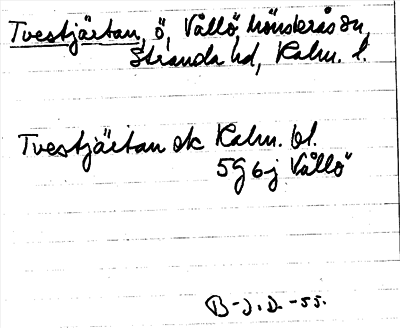 Tvestjärtan, ö, Vållö, Mönsterås sn,
Stranda hd, Kalm. l.
Tvestjärtan ek Kalm. bl.
5G 6j Vållö
B-J.D. -55.